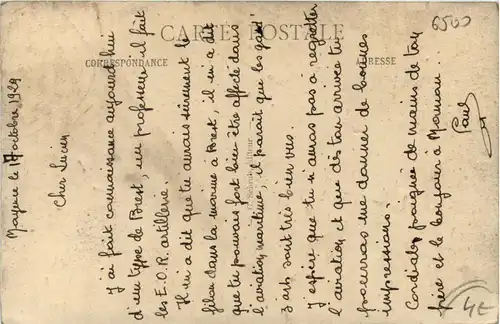 CARTE POSTALE
CORRESPONDANCE
ADRESSE
6500
Mayenne le 17 octobre 1929
Cher Lucien
J'ai fait connaissance aujourd'hui
d'un type de Brest, un professeur, il fait
les E.O.R. artillerie.
Il m'a dit que tu aurais sûrement le
filon dans la marine à Brest, il m'a dit
que tu pouvais fort bien être affecté dans
l'aviation maritime, il paraît que les gars
z'arts sont très bien vus.
J'espère que tu n'auras pas à regretter
l'aviation et que dès ton arrivée tu
pourras me donner de bonnes
impressions.
Cordiale poignée de mains de ton
frère et le bonjour à Maman.
Paul
4E